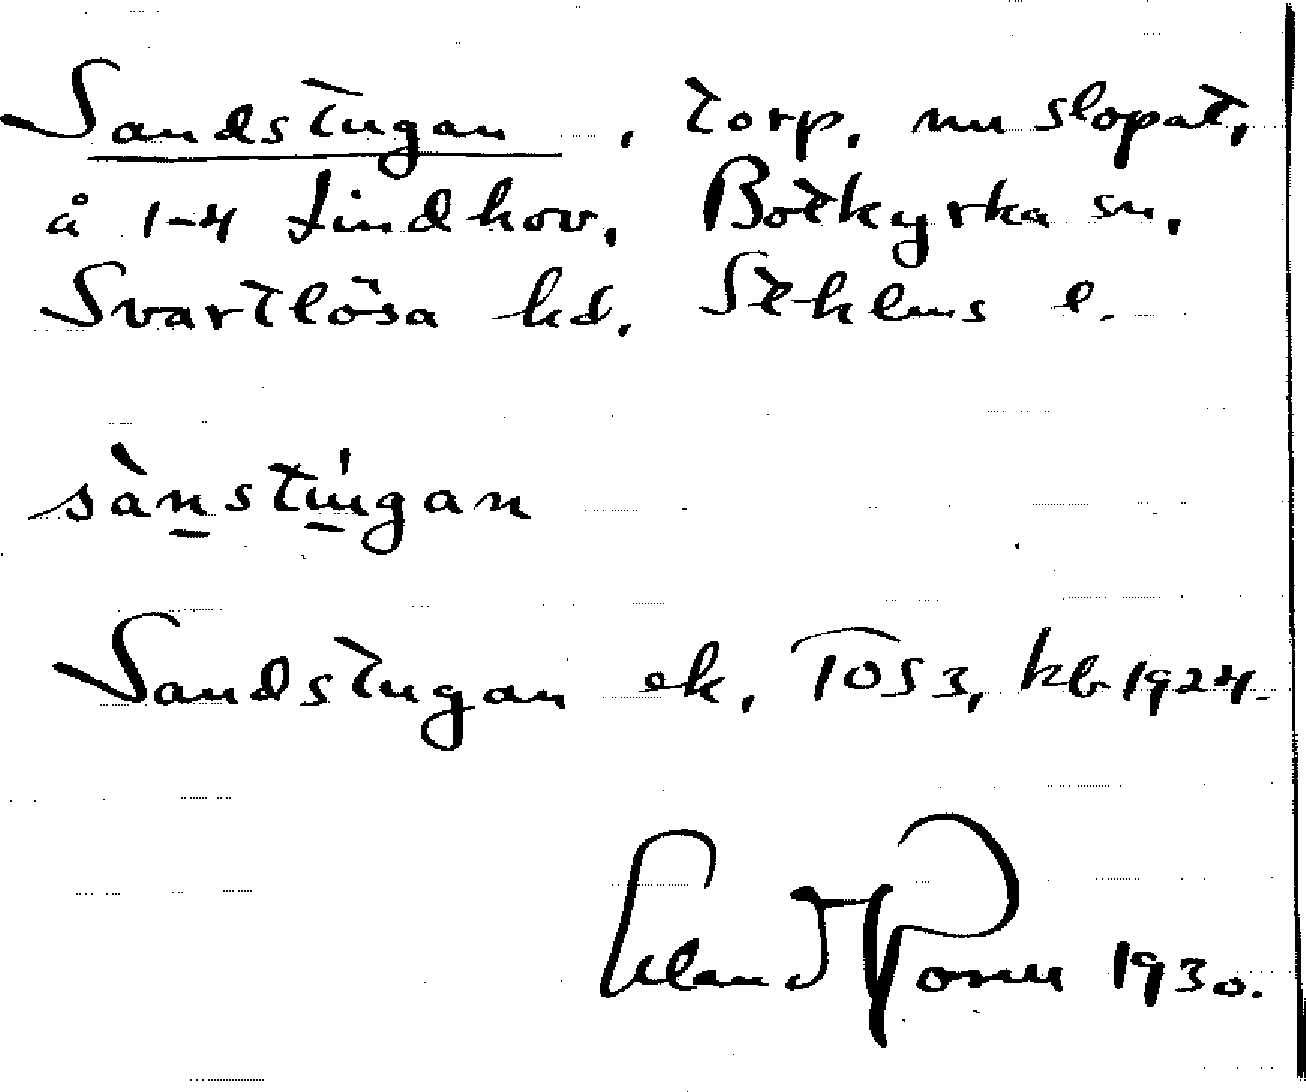 Sandstugan, torp, nu slopat,
å 1-4 Lindhov, Botkyrka sn,
Svartlösa hd, Sthlms l.
sànstúgan
Sandstugan ek, TOS 3, kb 1924.
Erland Rosell 1930.